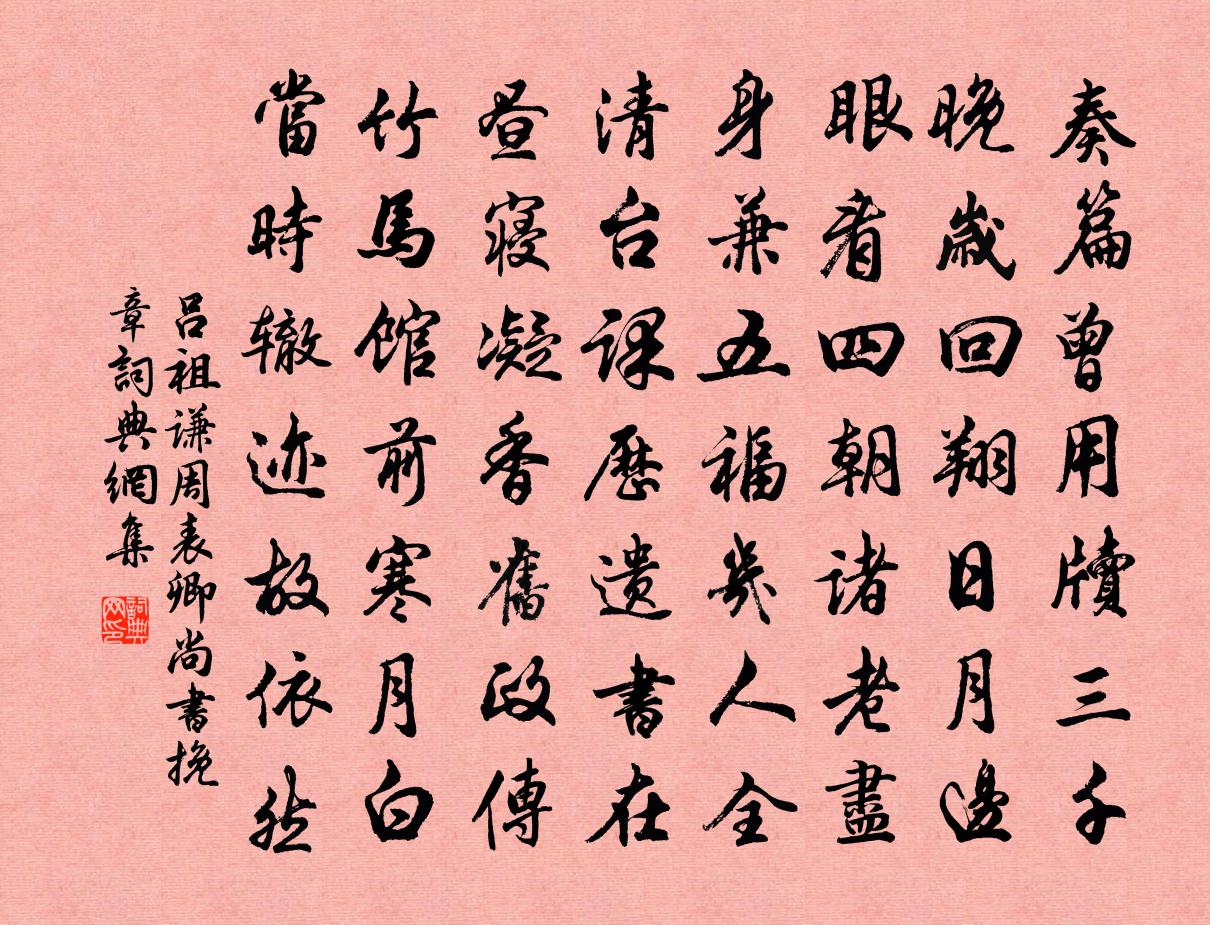 奏篇曾用牘三千
晚歲回翔日月邊
眼看四朝諸老盡
身兼五福幾人全
清台課歷遺書在
晝寢凝香舊政傳
竹馬館前寒月白
當時辙迹故依然
吕祖谦周表卿尚書挽
章詞典網集
詞典网印